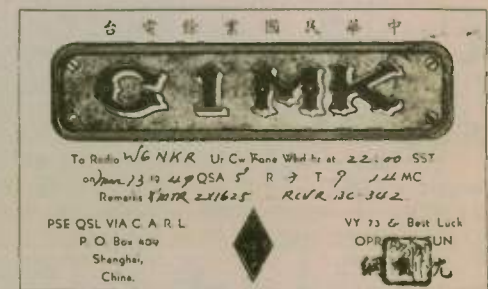 台電務業國民華中
C1MK
To Radio W6NKR Ur Cw Fone Wkd hr at 22.00 SST
on Mar 13 1949 QSA 5 R 7 T 9 14 MC
Remarks XMTR 2X1625 RCVR BC-342
PSE QSL VIA C A R L
P. O. Box 409
Shanghai,
China.
VY 73 & Best Luck
OPR SUN